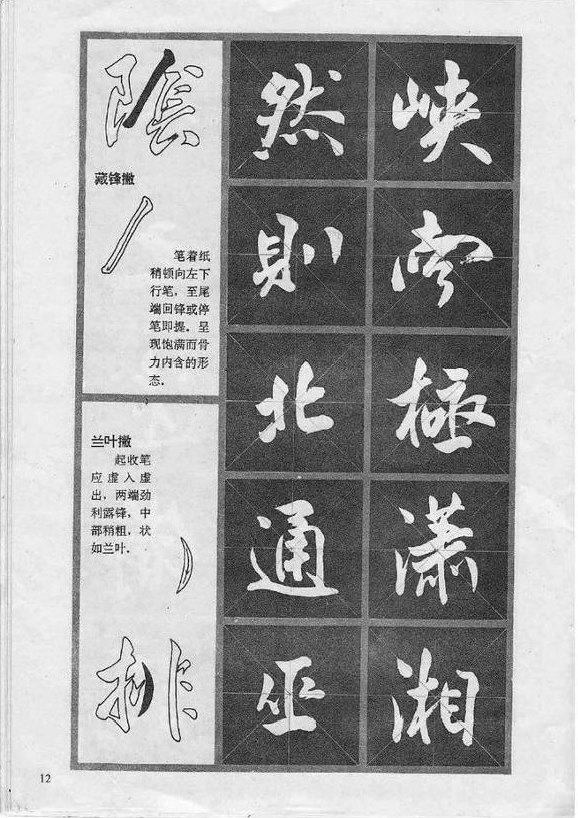 陰
藏锋撇
笔着纸
稍顿向左下
行笔,至尾
端回锋或停
笔即提。呈
现饱满而骨
力内含的形
态。
兰叶撇
起收笔
应虚入虚
出,两端劲
利露锋,中
部稍粗,状
如兰叶。
排
然則北通巫
峽南極瀟湘
12